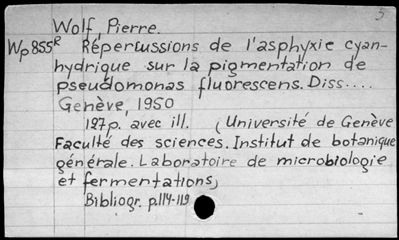 5
Wolf, Pierre.
Wp855R Répercussions de l'asphyxie cyan-
hydrique sur la pigmentation de
pseudomonas fluorescens. Diss....
Genève, 1950
127p. avec ill. (Université de Genève
Faculté des sciences. Institut de botanique
générale. Laboratoire de microbiologie
et fermentations)
Bibliogr. p.114-119